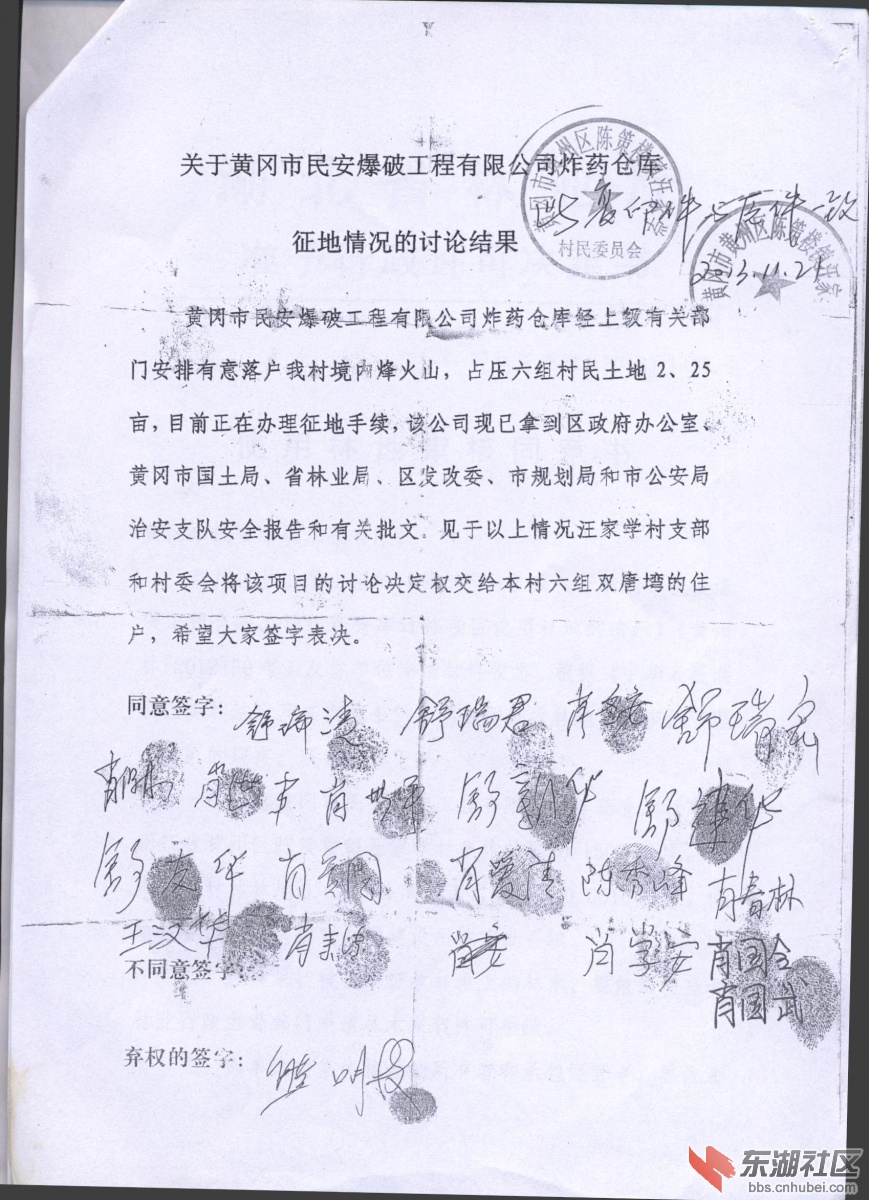 关于黄冈市民安爆破工程有限公司炸药仓库
征地情况的讨论结果
村民委员会
此复印件与原件一致
2013.11.21
黄冈市民安爆破工程有限公司炸药仓库经上级有关部
门安排有意落户我村境内烽火山，占压六组村民土地2、25
亩，目前正在办理征地手续，该公司现已拿到区政府办公室、
黄冈市国土局、省林业局、区发改委、市规划局和市公安局
治安支队安全报告和有关批文。见于以上情况汪家学村支部
和村委会将该项目的讨论决定权交给本村六组双唐塆的住
户，希望大家签字表决。
同意签字：
舒瑞君
舒新华
舒建华
舒友华
肖爱清 陈秀峰 肖春林
王汉华 肖学安 肖国全
不同意签字：
肖国武
弃权的签字：
东湖社区
bbs.cnhubei.com